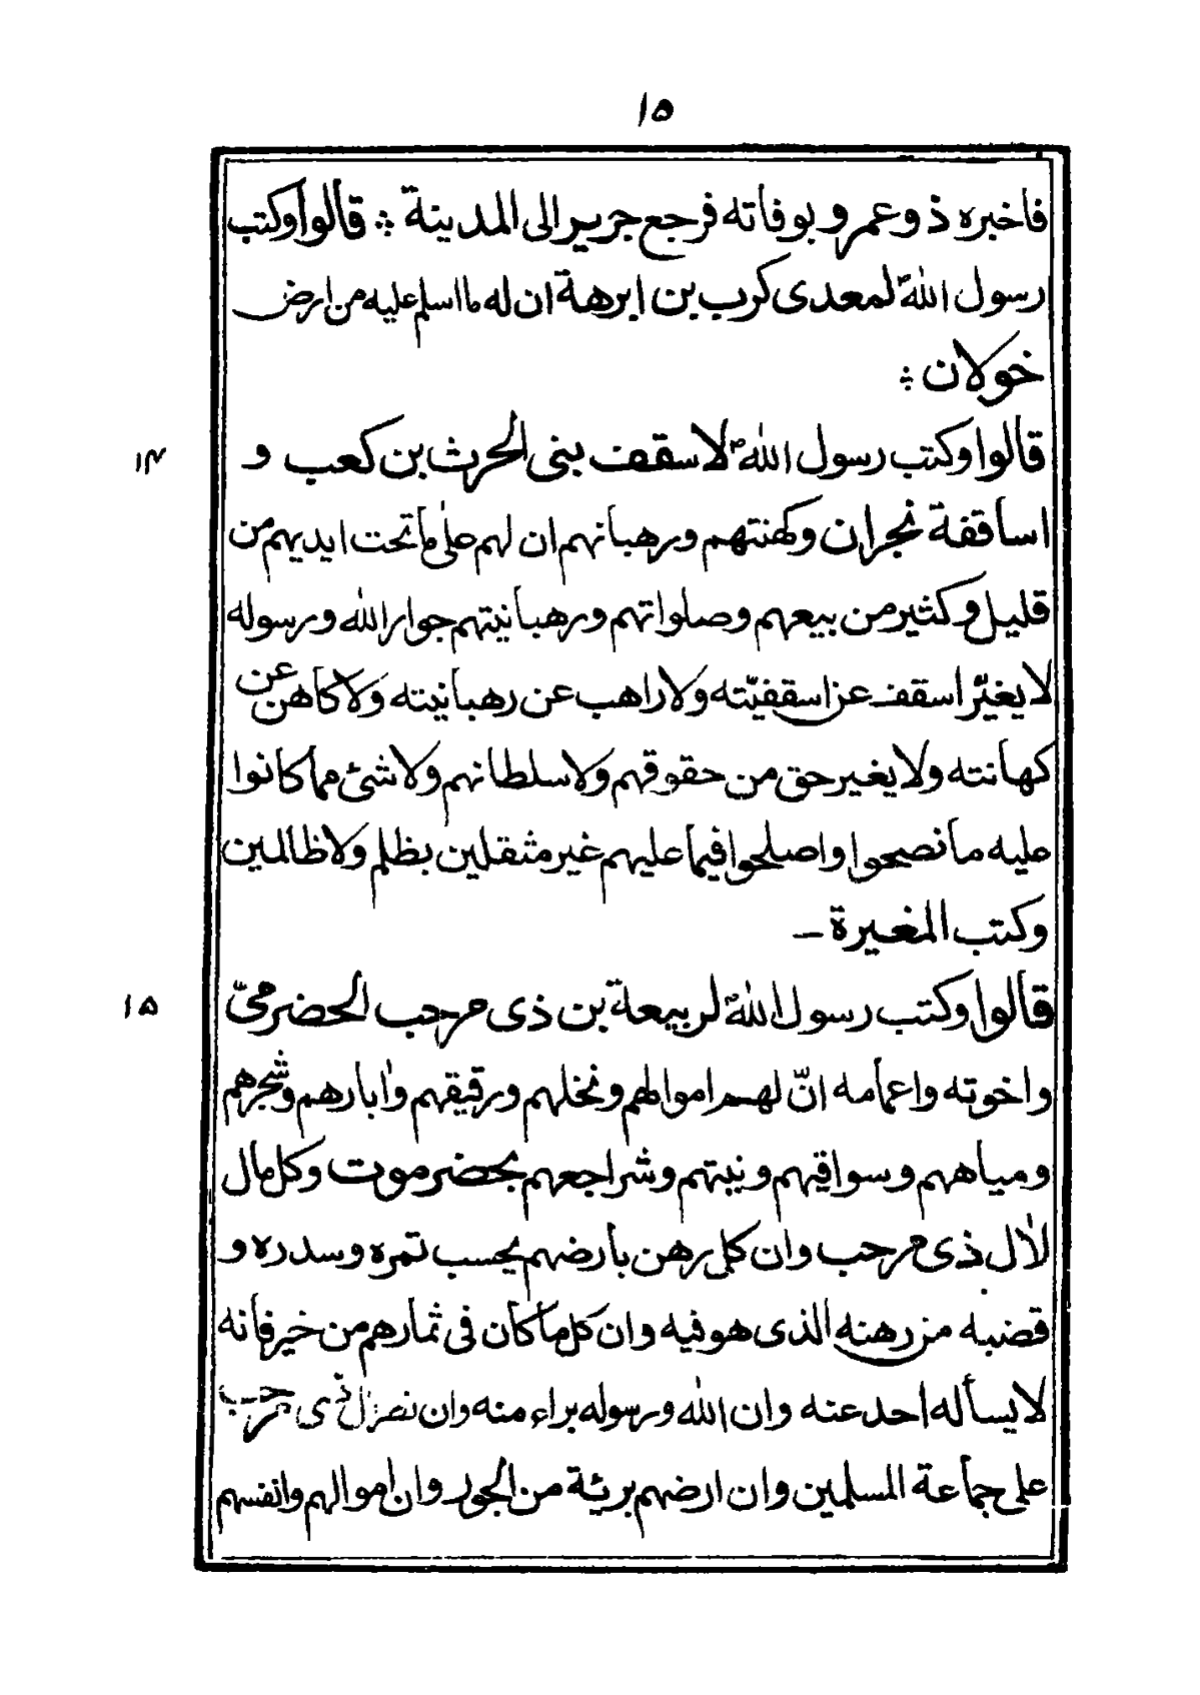 ۱۵
فاخبره ذو عمرو بوفاته فرجع جرير الى المدينة ؞ قالوا وكتب
رسول اللهؐ لمعدى كرب بن ابرهة ان له ما اسلم عليه من ارض
خولان ؞
۱۴
قالوا وكتب رسول اللهؐ لاسقف بنى الحرث بن كعب و
اساقفة نجران وكهنتهم ورهبانهم ان لهم على ما تحت ايديهم من
قليل وكثير من بيعهم وصلواتهم ورهبانيتهم جوار الله ورسوله
لا يغيّر اسقف عن اسقفيّته ولا راهب عن رهبانيته ولا كاهن عن
كهانته ولا يغير حق من حقوقهم ولا سلطانهم ولا شئ مما كانوا
عليه ما نصحوا واصلحوا فيما عليهم غير مثقلين بظلم ولا ظالمين
وكتب المغيرة ـ
۱۵
قالوا وكتب رسول اللهؐ لربيعة بن ذى مرحب الحضرمىّ
واخوته واعمامه انّ لهم اموالهم ونخلهم ورقيقهم وابارهم وشجرهم
ومياههم وسواقيهم ونبتهم وشراجعهم بحضرموت وكل مال
لاٰل ذى مرحب وان كل رهن بارضهم يحسب ثمره وسدره و
قضبه من رهنه الذى هو فيه وان كل ما كان فى ثمارهم من خير فانه
لا يسأله احد عنه وان الله ورسوله براء منه وان نصر اٰل ذى مرحب
على جماعة المسلمين وان ارضهم بريئة من الجور وان اموالهم وانفسهم